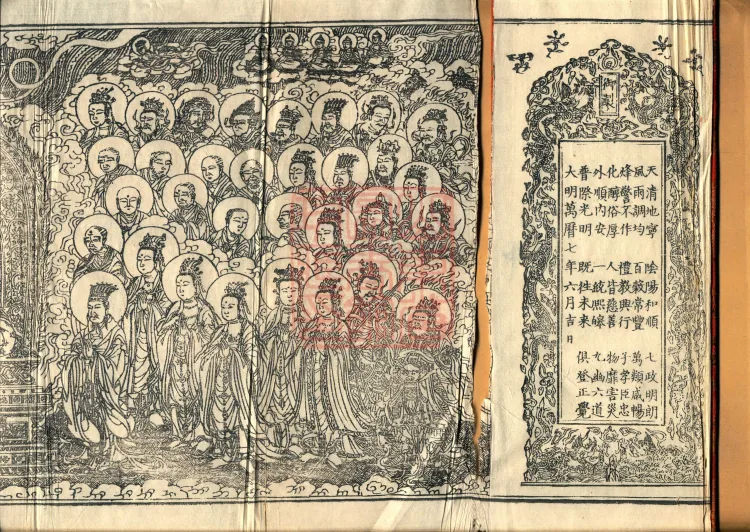 御製
天清地寧　陰陽和順　七政明朗
風雨調均　百穀常豐　萬類咸暢
烽警不作　禮教興行　子孝臣忠
化醇俗厚　人皆慈善　物靡害災
外順內安　一統熙皞　九幽六道
普際光明　既往未來　俱登正覺
大明萬曆七年六月吉日